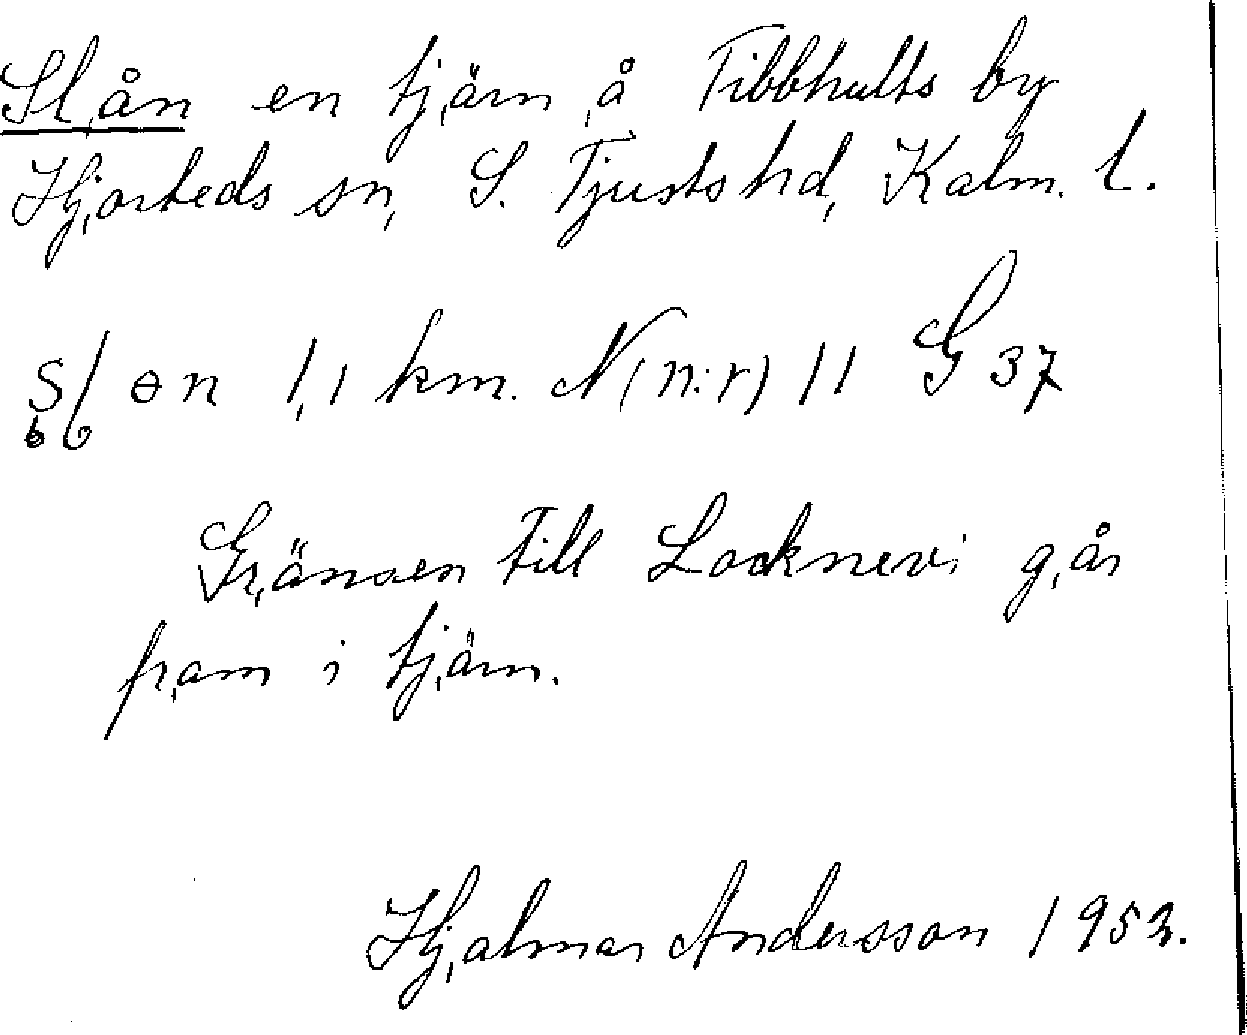 Slån en tjärn å Tibbhults by
Hjorteds sn, S. Tjusts hd, Kalm. l.
en 1,1 km. N (n:r) 11 G 37
Gränsen till Locknevi går
fram i tjärn.
Hjalmar Andersson 1953.